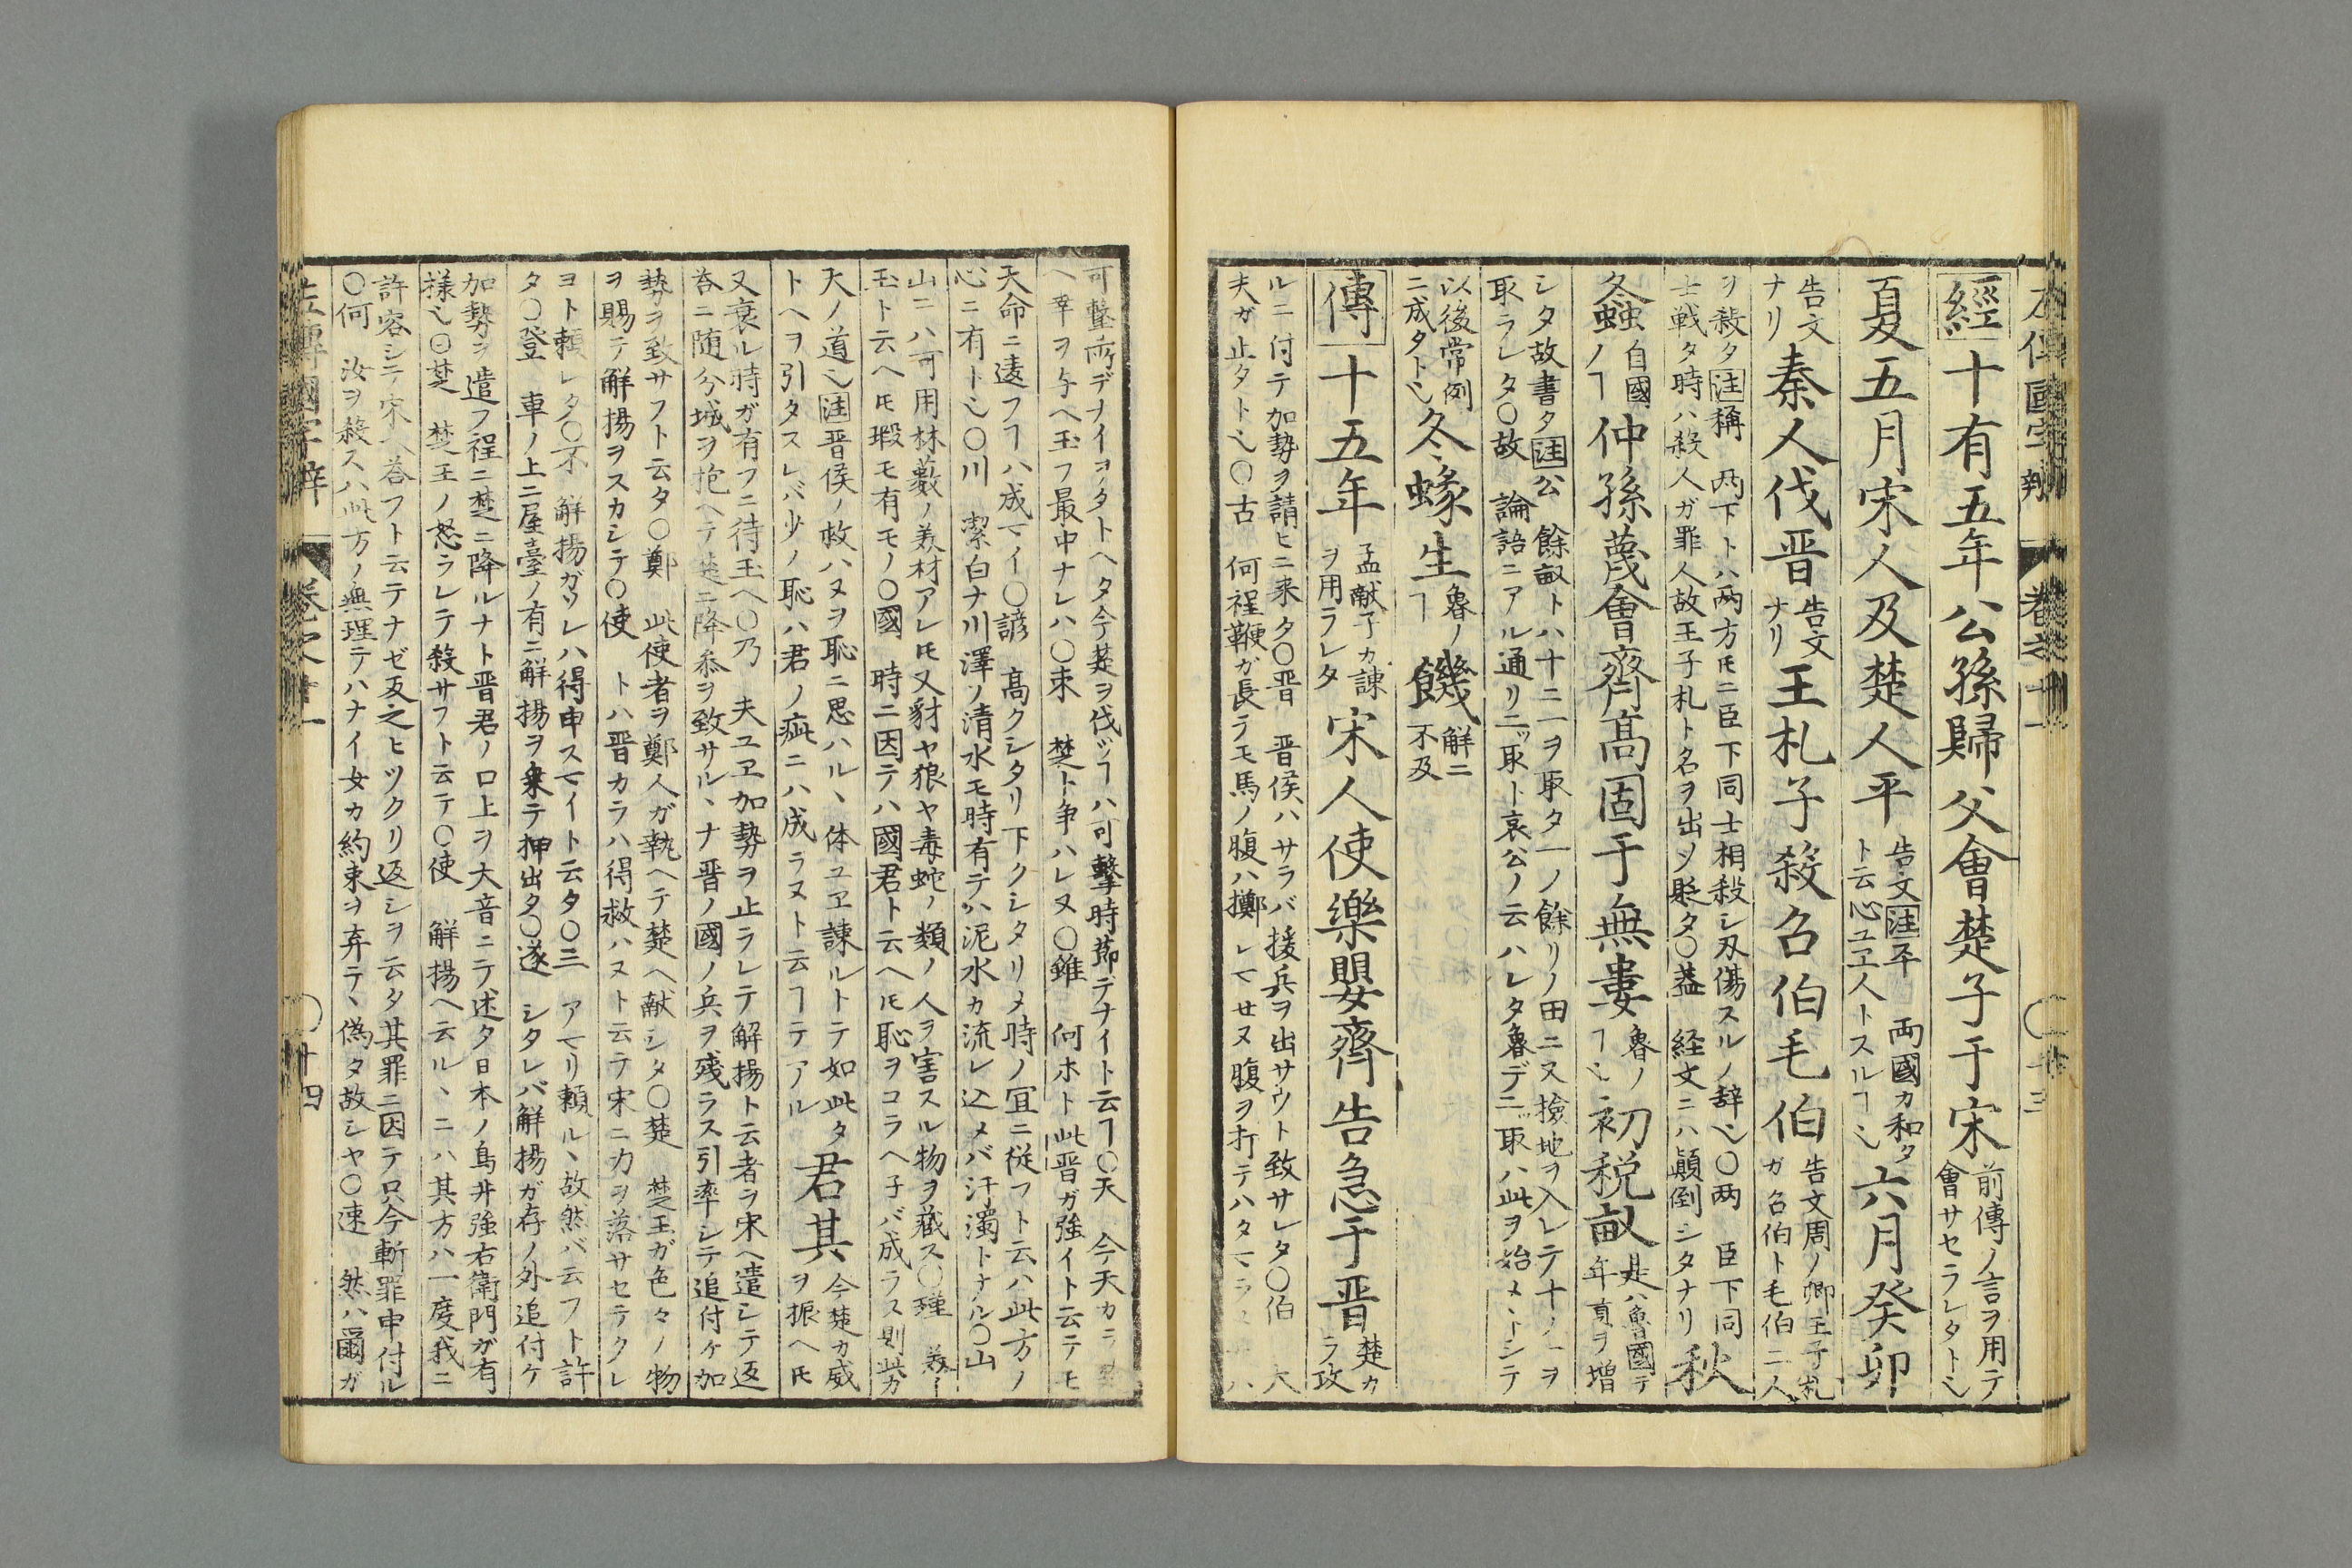 經 十有五年公孫歸父會楚子于宋 前傳ノ言ヲ用テ會サセラレタト也
夏五月宋人及楚人平 告文注平 両國カ和タト云心ユヱ人トスルヿ也 六月癸卯
告文ナリ 秦人伐晋 告文ナリ 王札子殺召伯毛伯 告文周ノ卿王子札ガ召伯ト毛伯二人
ヲ殺タ注稱 両下トハ両方ㇳモニ臣下同士相殺シ刃傷スルノ辞也〇両 臣下同
士戦タ時ハ殺人ガ罪人故王子札ト名ヲ出シ貶タ〇葢 経文ニハ顛倒シタナリ 秋
螽 自國ノヿ 仲孫蔑會齊高固于無婁 魯ノヿ也 初税畝 是ハ魯國テ年貢ヲ増
シタ故書タ注公 餘畝トハ十ニ一ヲ取タ一ノ餘リノ田ニ又撿地ヲ入レテ十ノ一ヲ
取ラレタ〇故 論語ニアル通リ二ッ取ト哀公ノ云ハレタ魯デ二ッ取ハ此ヲ始メトシテ
以後常例ニ成タト也 冬蝝生 魯ノヿ 饑 解ニ不及
傳 十五年 孟献子カ諌ヲ用ラレタ 宋人使樂嬰齊告急于晋 楚カラ攻
ルニ付テ加勢ヲ請ヒニ来タ〇晋 晋侯ハサラバ援兵ヲ出サウト致サレタ〇伯 大
夫ガ止タト也〇古 何程鞭ガ長テモ馬ノ腹ハ擲レマセヌ腹ヲ打テハタマラ
可撃所デナイヲタトヘタ今楚ヲ伐ツヿハ可撃時節デナイト云ヿ〇天 今天カラ
ヘ幸ヲ与ヘ玉フ最中ナレハ〇未 楚ト争ハレヌ〇雖 何ホト此晋ガ強イト云テモ
天命ニ違フヿハ成マイ〇諺 高クシタリ下クシタリメ時ノ宜ニ従フト云ハ此方ノ
心ニ有ト也〇川 潔白ナ川澤ノ清水モ時有テハ泥水カ流レ込メバ汗濁トナル〇山
山ニハ可用林藪ノ美材アレㇳモ又豺ヤ狼ヤ毒蛇ノ類ノ人ヲ害スル物ヲ藏ス〇瑾 美
玉ト云ヘㇳモ瑕モ有モノ〇國 時ニ因テハ國君ト云ヘㇳモ恥ヲコラヘ子バ成ラス則此カ
天ノ道也注晋侯ノ救ハヌヲ恥ニ思ハルヽ体ユヱ諌ルトテ如此タ 君其 今楚カ威ヲ振ヘㇳモ
トヘヲ引タスレバ少ノ恥ハ君ノ疵ニハ成ラヌト云ヿテアル
又衰ル時ガ有フニ待玉ヘ〇乃 夫ユヱ加勢ヲ止ラレテ解揚ト云者ヲ宋ヘ遣シテ返
呑ニ随分城ヲ抱ヘテ楚ニ降参ヲ致サルヽナ晋ノ國ノ兵ヲ殘ラス引率シテ追付ケ加
勢ヲ致サフト云タ〇鄭 此使者ヲ鄭人ガ執ヘテ楚ヘ献シタ〇楚 楚王ガ色々ノ物
ヲ賜テ解揚ヲスカシテ〇使 トハ晋カラハ得救ハヌト云テ宋ニ力ヲ落サセテクレ
ヨト頼レタ〇不 解揚ガソレハ得申スマイト云タ〇三 アマリ頼ルヽ故然バ云フト許
タ〇登 車ノ上ニ屋臺ノ有ニ解揚ヲ乗テ押出タ〇遂 シタレバ解揚ガ存ノ外追付ケ
加勢ヲ遣フ程ニ楚ニ降ルナト晋君ノ口上ヲ大音ニテ述タ日本ノ鳥井強右衛門ガ有
様也〇楚 楚王ノ怒ラレテ殺サフト云テ〇使 解揚ヘ云ルヽニハ其方ハ一度我ニ
許容シテ宋ヘ荅フト云テナゼ反之ヒツクリ返シヲ云タ其罪ニ因テ只今斬罪申付ル
〇何 汝ヲ殺スハ此方ノ無理テハナイ女カ約束ヲ弃テヽ偽タ故シヤ〇速 然ハ爾ガ
左傳國字辨 卷之十一 〇十四